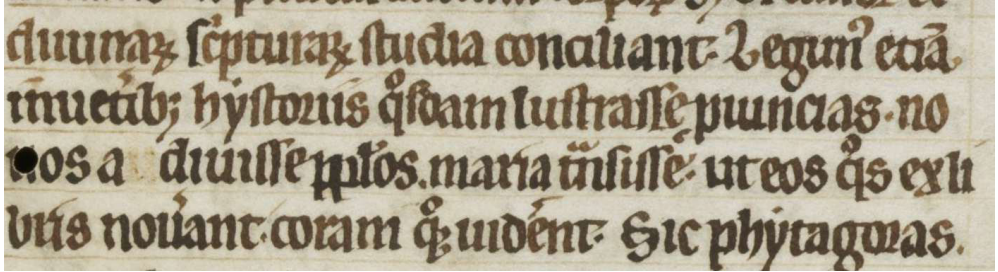 diuinaꝝ sc̓pturaꝝ studia conciliant· Legimꝰ etiā
in uet̓ib; hystoriis qͦsdam lustrasse ꝓuincias· no
uos a diuisse pp̄los. maria tᷓnsisse· ut eos qͦs ex li
bris nou̓ant· coram qͦꝫ uid̓ent· Sic phytagoras.